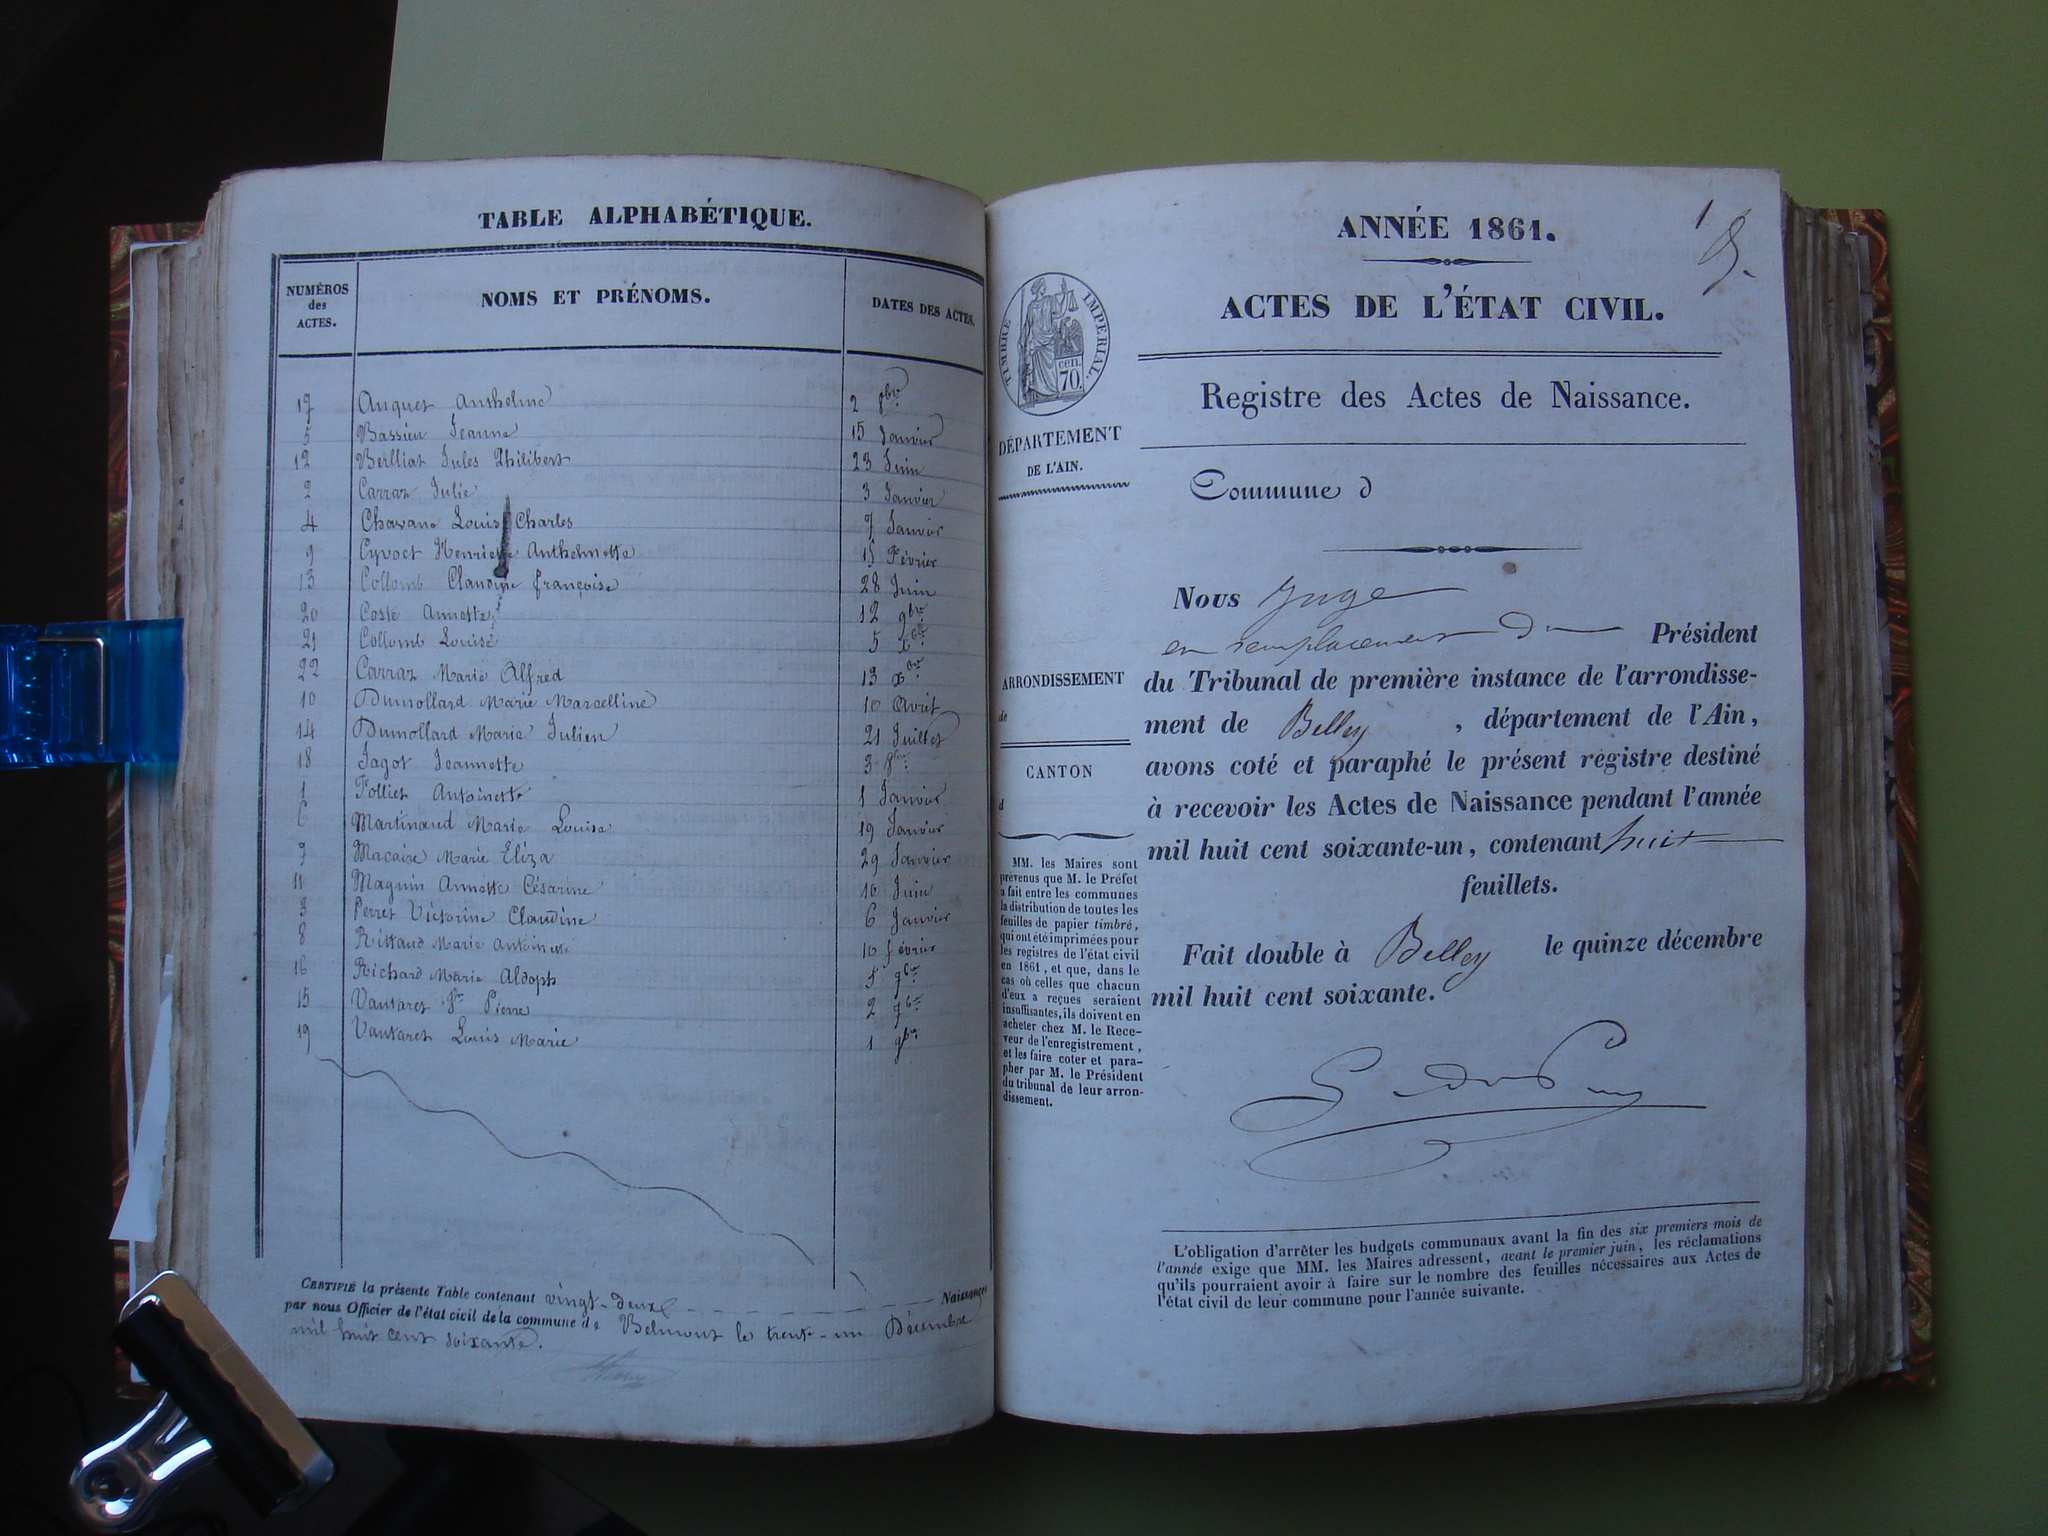 TABLE ALPHABÉTIQUE.
NUMÉROS des ACTES. NOMS ET PRÉNOMS. DATES DES ACTES.
17 Auguet Anthelme 2 8bre
5 Bassieu Jeanne 15 Janvier
12 Berlliat Jules Philibert 23 Juin
2 Carraz Julie 3 Janvier
4 Chavane Louis Charles 7 Janvier
9 Cyvoct Henriette Anthelmette 15 Février
13 Collomb Claudine françoise 28 Juin
20 Coste Annette 12 9bre
21 Collomb Louise 5
22 Carraz Marie Alfred 13
10 Dumollard Marie Marcelline 10 Avril
14 Dumollard Marie Julien 21 Juillet
18 Jagot Jeannette 3 8bre
1 Folliet Antoinette 1 Janvier
6 Martinaud Marie Louise 19 Janvier
7 Macaire Marie Eliza 29 Janvier
11 Magnin Annette Césarine 10 Juin
3 Perret Victorine Claudine 6 Janvier
8 Rittaud Marie Antoinette 10 février
16 Richard Marie Aldoph
15 Vantaret Pierre 2
19 Vantaret Louis Marie 1 9bre
CERTIFIÉ la présente Table contenant vingt-deux Naissances
par nous Officier de l'état civil de la commune de Belmont le trente-un Décembre
mil huit cent soixante.
1
ANNÉE 1861.
ACTES DE L'ÉTAT CIVIL.
TIMBRE IMPÉRIAL.
cen. 70.
Registre des Actes de Naissance.
DÉPARTEMENT
DE L'AIN.
Commune d
ARRONDISSEMENT
de
CANTON
d
MM. les Maires sont
prévenus que M. le Préfet
a fait entre les communes
la distribution de toutes les
feuilles de papier timbré,
qui ont été imprimées pour
les registres de l'état civil
en 1861, et que, dans le
cas où celles que chacun
d'eux a reçues seraient
insuffisantes, ils doivent en
acheter chez M. le Rece-
veur de l'enregistrement,
et les faire coter et para-
pher par M. le Président
du tribunal de leur arron-
dissement.
Nous Juge
en remplacement du Président
du Tribunal de première instance de l'arrondisse-
ment de Belley, département de l'Ain,
avons coté et paraphé le présent registre destiné
à recevoir les Actes de Naissance pendant l'année
mil huit cent soixante-un, contenant huit
feuillets.
Fait double à Belley le quinze décembre
mil huit cent soixante.
L'obligation d'arrêter les budgets communaux avant la fin des six premiers mois de
l'année exige que MM. les Maires adressent, avant le premier juin, les réclamations
qu'ils pourraient avoir à faire sur le nombre des feuilles nécessaires aux Actes de
l'état civil de leur commune pour l'année suivante.